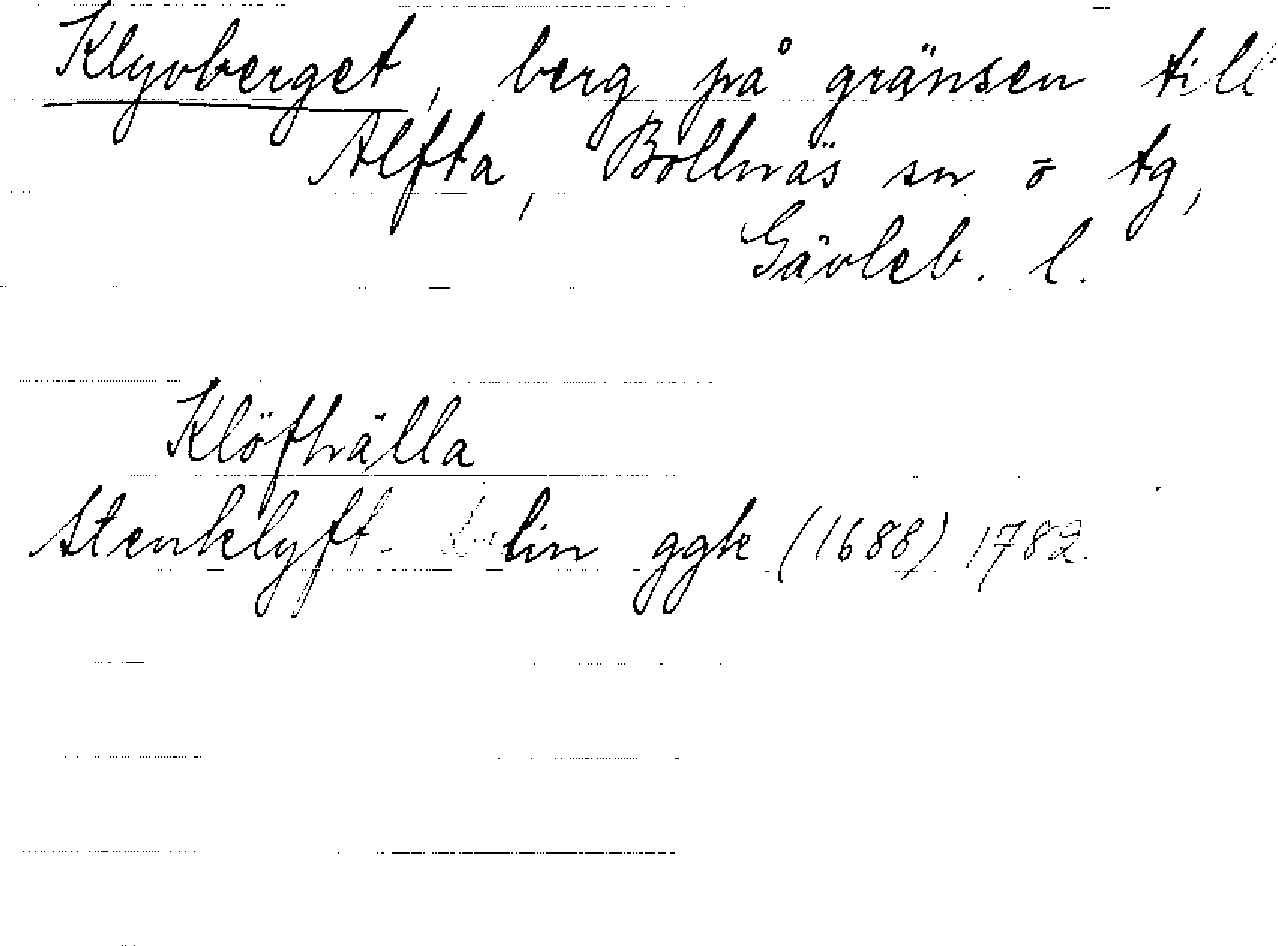 Klyvberget, berg på gränsen till
Alfta, Bollnäs sn o tg,
Gävleb. l.
Klöfhälla
Stenklyft- lin ggk (1688) 1782.